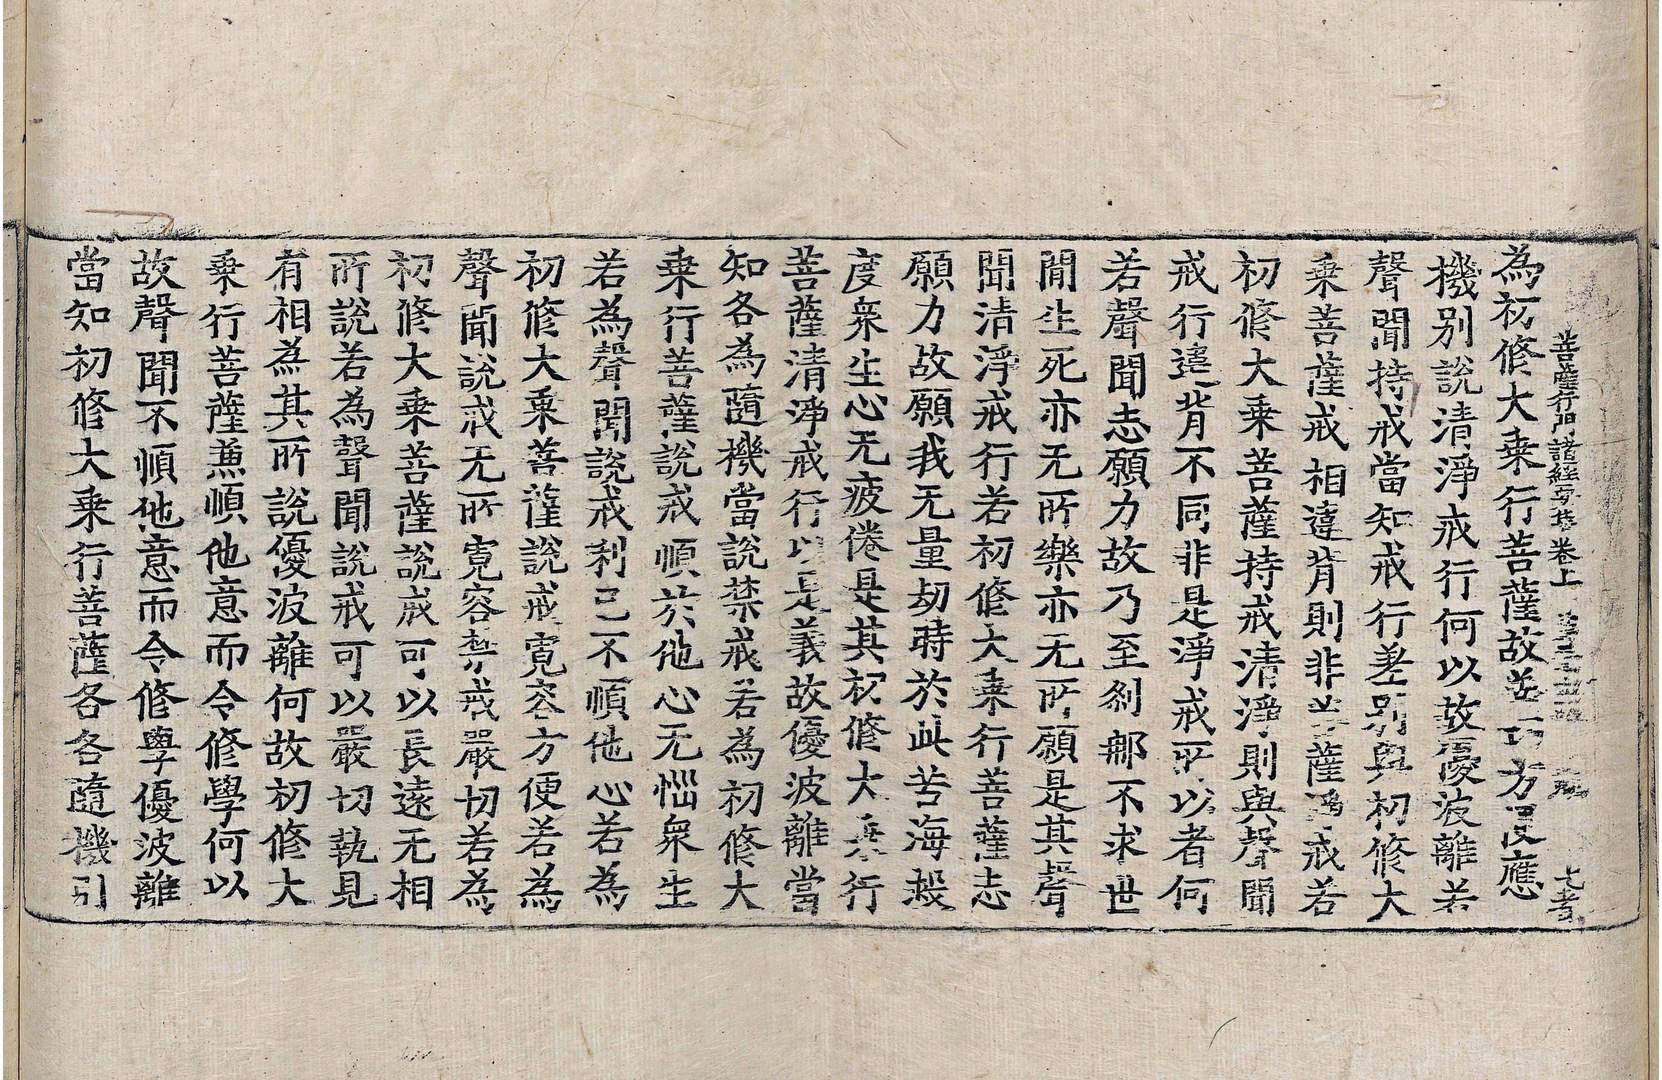 菩薩行門諸經要集卷上
為初修大乗行菩薩故善巧方便應
機别說清淨戒行何以故優波離若
聲聞持戒當知戒行差别與初修大
乗菩薩戒相違背則非菩薩 戒若
初修大乗菩薩持戒清淨則與聲聞
戒行違背不同非是淨戒所以者何
若聲聞志願力故乃至刹那不求世
間生死亦无所樂亦无所願是其聲
聞清淨戒行若初修大乗行菩薩志
願力故願我无量劫時於此苦海般
度衆生心无疲倦是其初修大乗行
菩薩清淨戒行以是義故優波離當
知各為隨機當說禁戒若為初修大
乗行菩薩說戒順於他心无惱衆生
若為聲聞說戒利己不順他心若為
初修大乗菩薩說戒寬容方便若為
聲聞說戒无所寬容禁戒嚴切若為
初修大乗菩薩說戒可以長遠无相
所說若為聲聞說戒可以嚴切執見
有相為其所說優波離何故初修大
乗行菩薩兼順他意而令修學何以
故聲聞不順他意而令修學優波離
當知初修大乗行菩薩各各隨機引